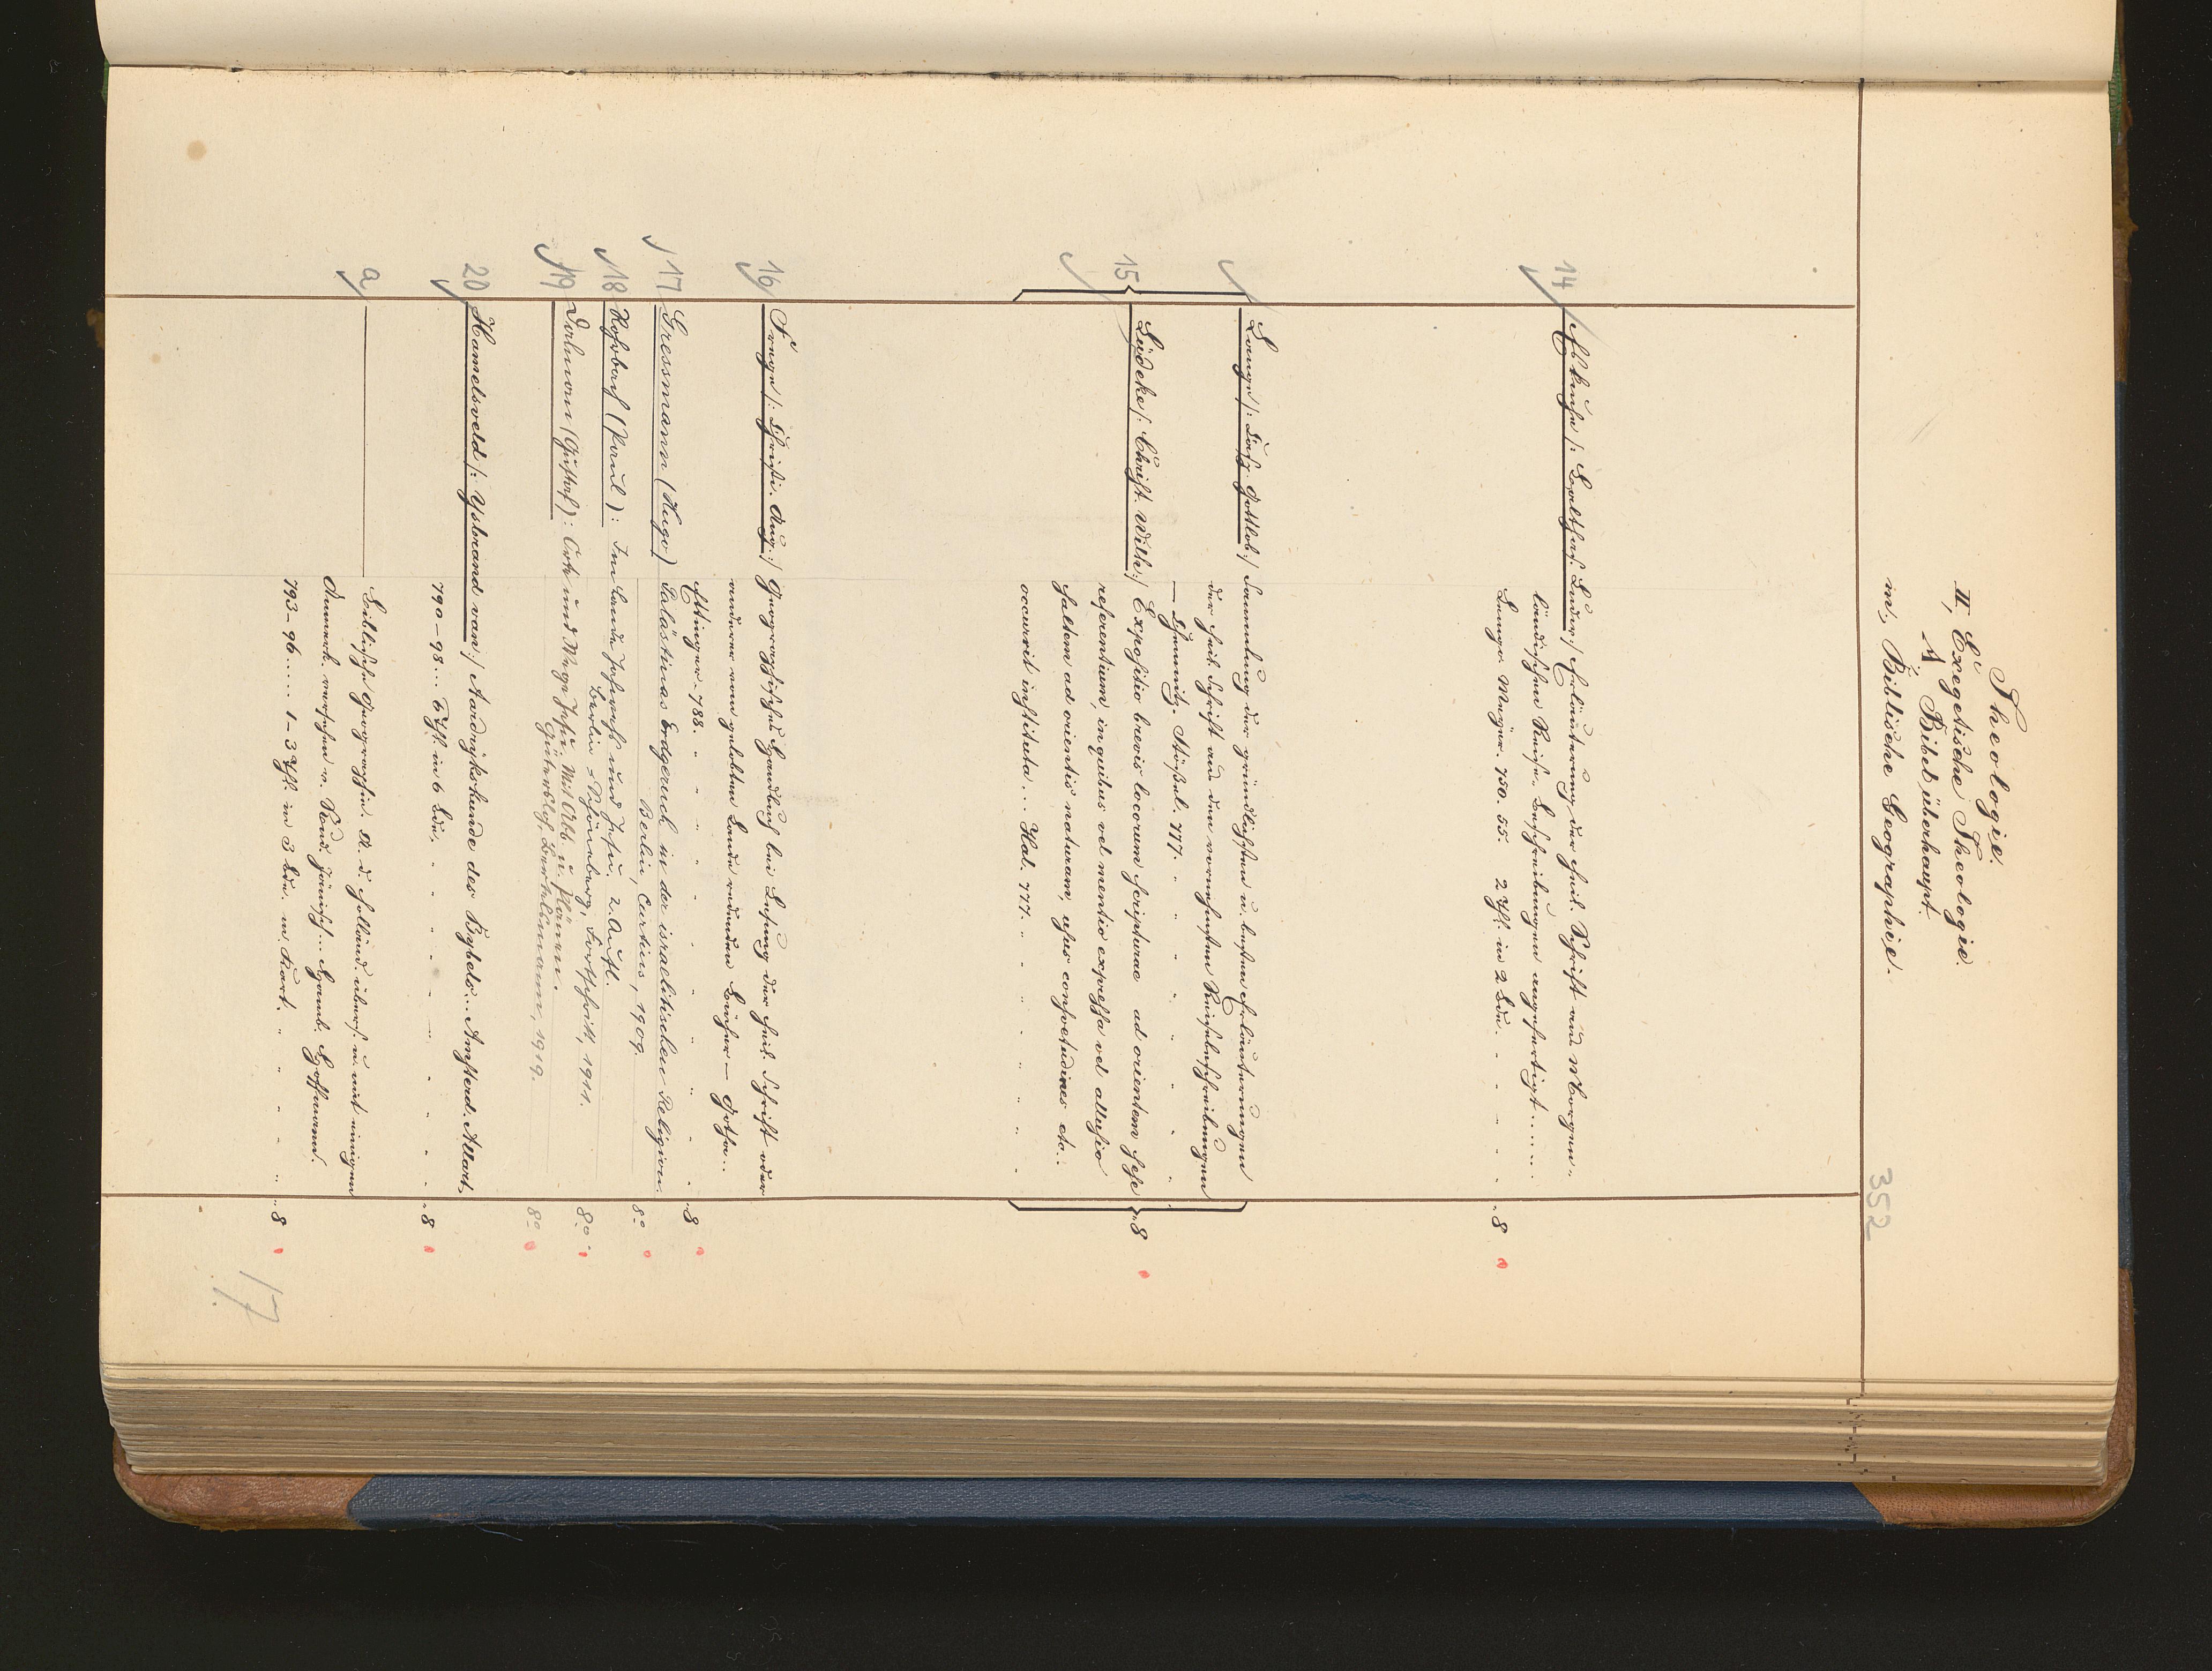 Theologie.
II, Exegetische Theologie.
A, Bibel überhaupt.
m, Biblische Geographie.
352
14 Ebkuhn /: Balthas. Luder :/ Erläuterung der heil. Schrift aus Morgen-
ländischen Reise Beschreibungen angefertigt .....
Lemgo Meyer. 750. 55. 2 Thl. in 2 Bdn. " 8
Lange /: Gottlob :/ Sammlung der gründlichsten u. besten Erläuterungen
der heil. Schrift aus den vornehmsten Reisebeschreibungen
— Chemnitz. Stößel. 777.
15 Lüdeke /: Christ. Wilh. :/ Expositio brevis locorum scripturae ad orientem sese
referentium, in quibus vel mentio expressa vel allusio
saltem ad orientis naturam, usus consuetudines etc..
occurrit instituta ... Hal. 777. " 8
16 Frege /: Christi. Aug. :/ Geographisches Handbuch bei Lesung der heil. Schrift oder
anderer vom gelobten Lande redenden Bücher — Gotha ..
Ettinger. 788. " 8
17 Gressmann (Hugo) Palästinas Erdgeruch in der israelitischen Religion.
Berlin, Curtius, 1909. 8°
18 Rohrbach (Paul): Im Lande Jahwehs und Jesu. 2. Aufl.
Berlin-Schöneberg, Fortschritt, 1911. 8°
19 Dalman (Gustaf): Orte und Wege Jesu. Mit Abb. u. Plänen.
Gütersloh, Bertelsmann, 1919. 8°
20 Hamelsveld /: Ysbrand van :/ Aardrijkskunde des Bybels ... Amsterd. Allart,
790–98 ... 6 Thl. in 6 Bdn. " 8
a — Biblische Geographie. A. d. Holländ. übers. u. mit einigen
Anmerk. versehen v. Rud. Jänisch ... Hamb. Hoffmann.
793–96 ..... 1–3 Thl. in 3 Bdn. m. Kart. " 8
17.